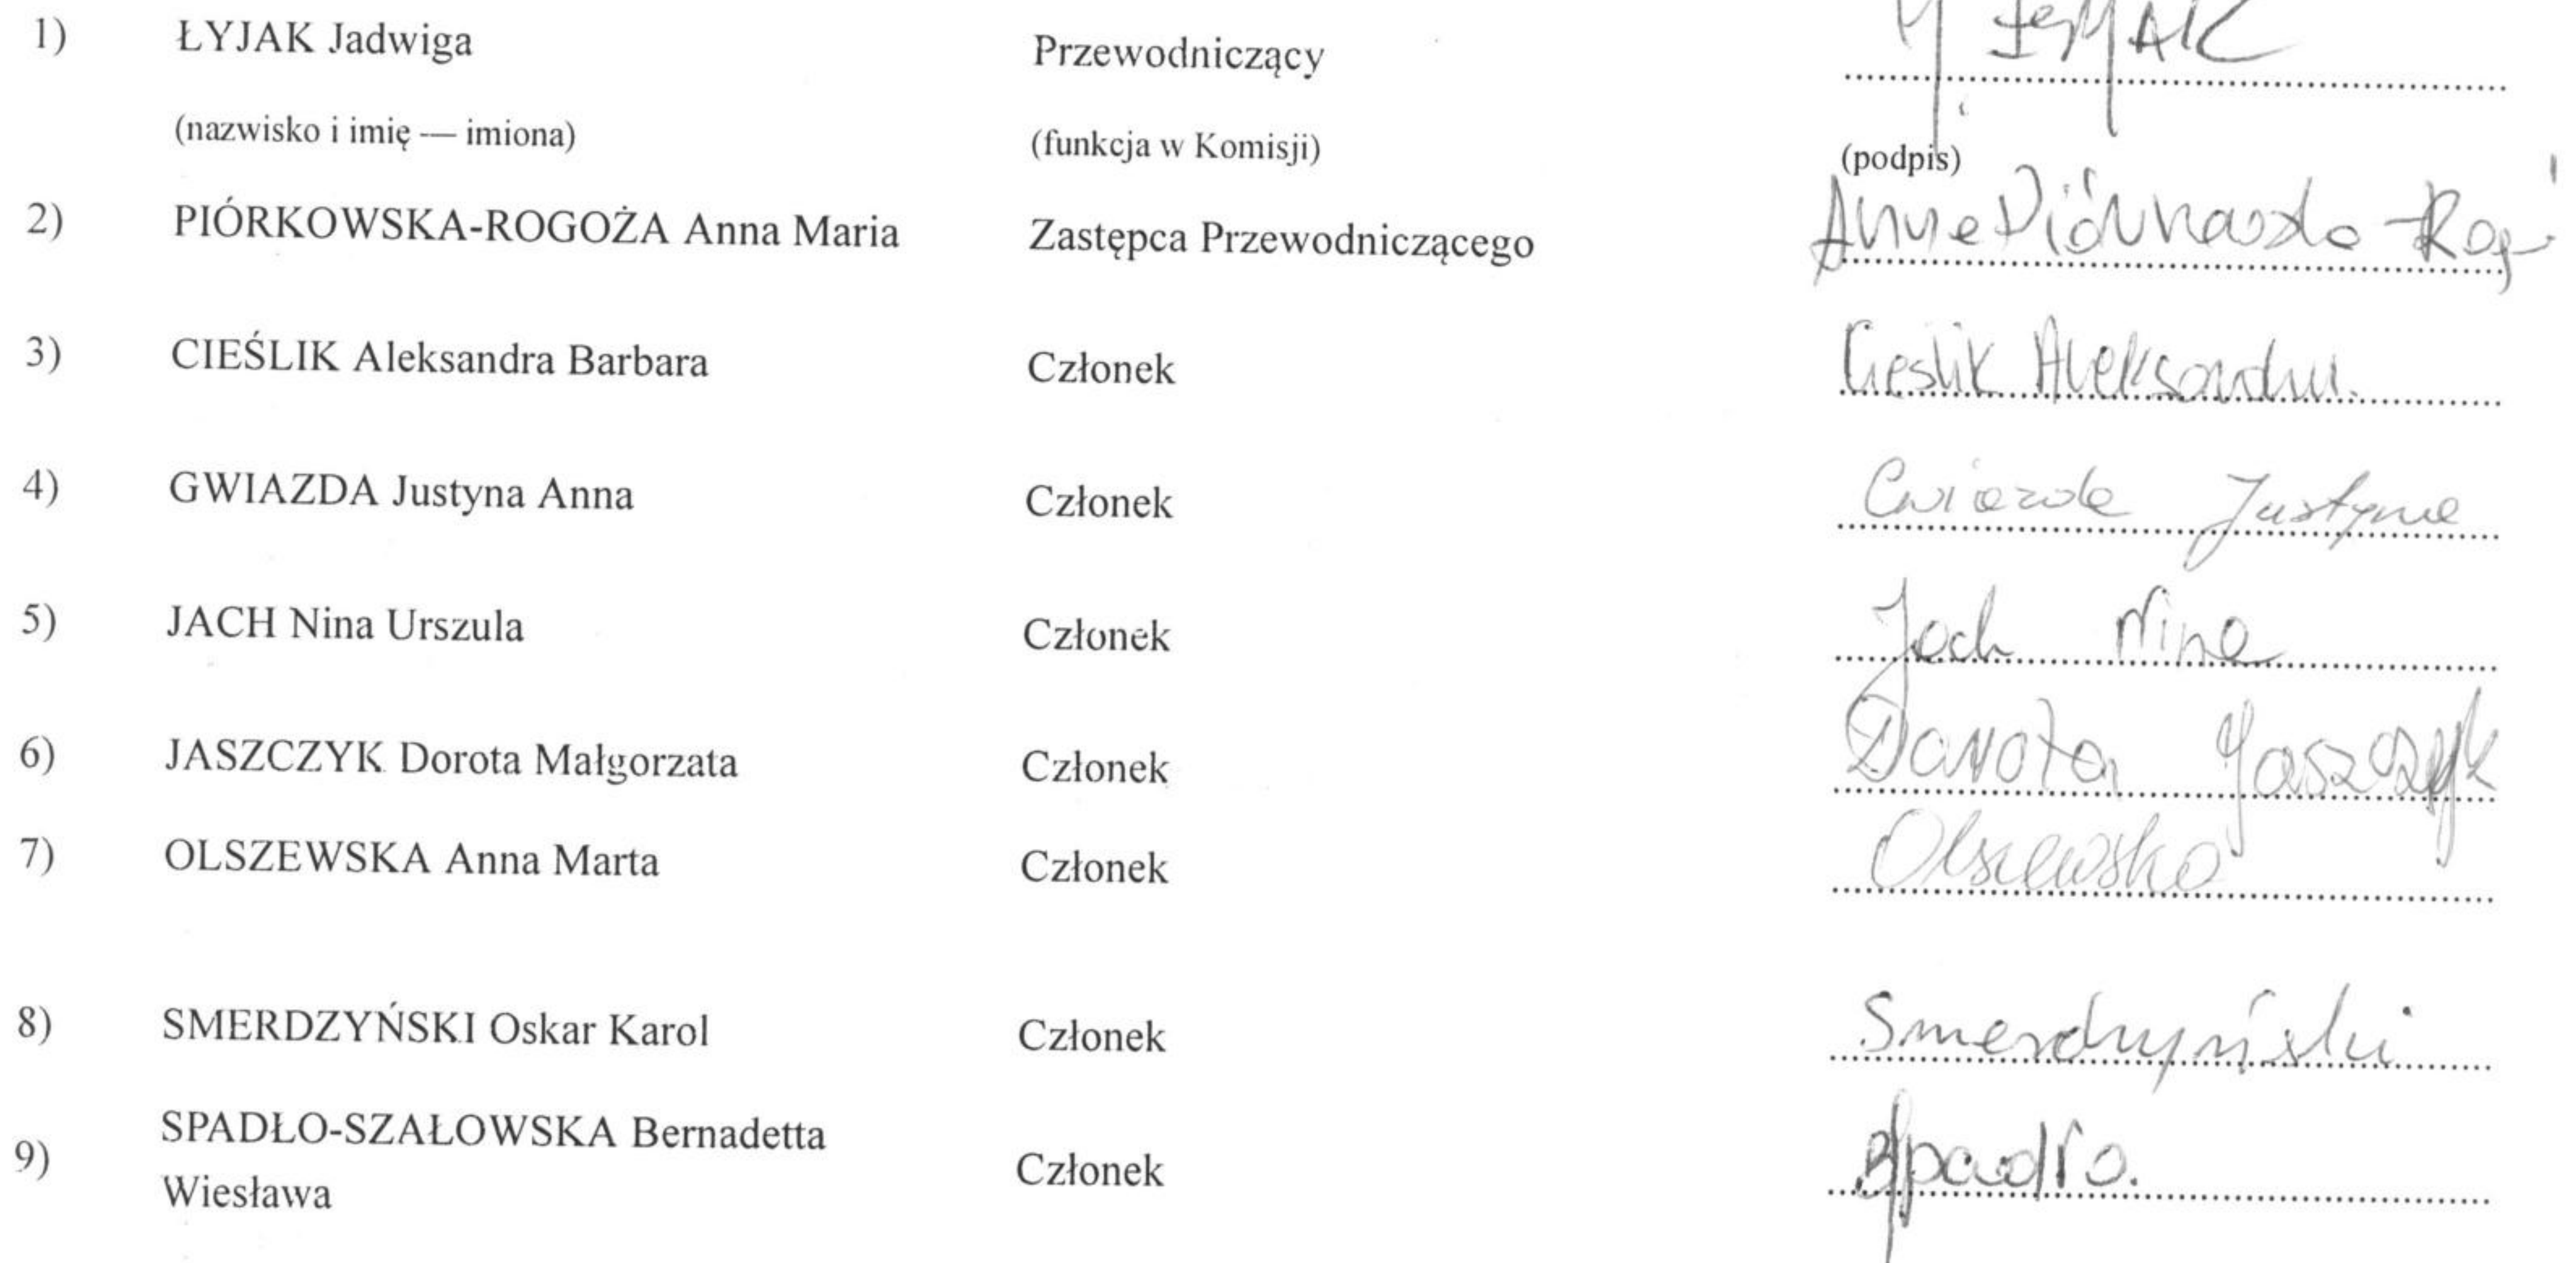 1) ŁYJAK Jadwiga Przewodniczący
(nazwisko i imię — imiona) (funkcja w Komisji) (podpis)
2) PIÓRKOWSKA-ROGOŻA Anna Maria Zastępca Przewodniczącego
3) CIEŚLIK Aleksandra Barbara Członek Cieslik Aleksandra
4) GWIAZDA Justyna Anna Członek Gwiazda Justyna
5) JACH Nina Urszula Członek Jach Nina
6) JASZCZYK Dorota Małgorzata Członek Dorota Jaszczyk
7) OLSZEWSKA Anna Marta Członek Olszewska
8) SMERDZYŃSKI Oskar Karol Członek Smerdzyński
9) SPADŁO-SZAŁOWSKA Bernadetta Członek BSpadło.
Wiesława